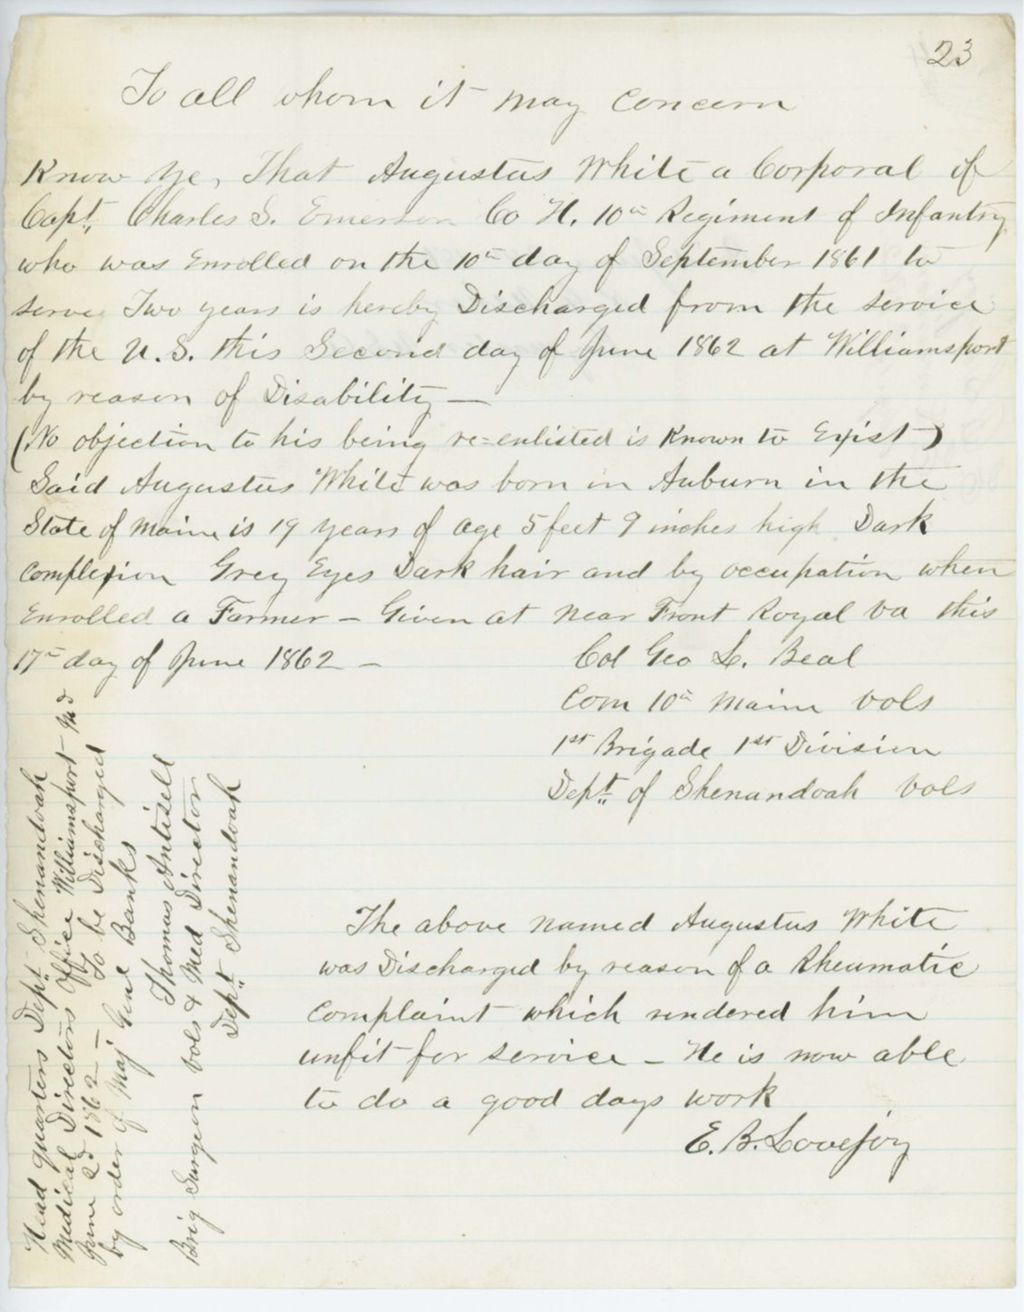 23
To all whom it may concern
Know Ye, That Augustus White a Corporal of
Capt. Charles S. Emerson Co H. 10th Regiment of Infantry
who was Enrolled on the 10th day of September 1861 to
serve Two years is hereby Discharged from the service
of the U.S. this Second day of June 1862 at Williamsport
by reason of Disability —
(No objection to his being re=enlisted is Known to Exist)
Said Augustus White was born in Auburn in the
State of Maine is 19 years of age 5 feet 9 inches high Dark
complexion Grey Eyes Dark hair and by occupation when
Enrolled a Farmer — Given at near Front Royal Va this
17th day of June 1862 —
Col Geo L. Beal
Com 10th Maine Vols
1st Brigade 1st Division
Dept. of Shenandoah Vols
Head quarters Dept. Shenandoah
Medical Directors Office Williamsport Md
June 2d 1862 — To be Discharged
by order of Maj Genl Banks
Thomas Antisell
Brig Surgeon Vols & Med Director
Dept. Shenandoah
The above named Augustus White
was Discharged by reason of a Rheumatic
Complaint which rendered him
unfit for service — He is now able
to do a good days work
E. B. Lovejoy